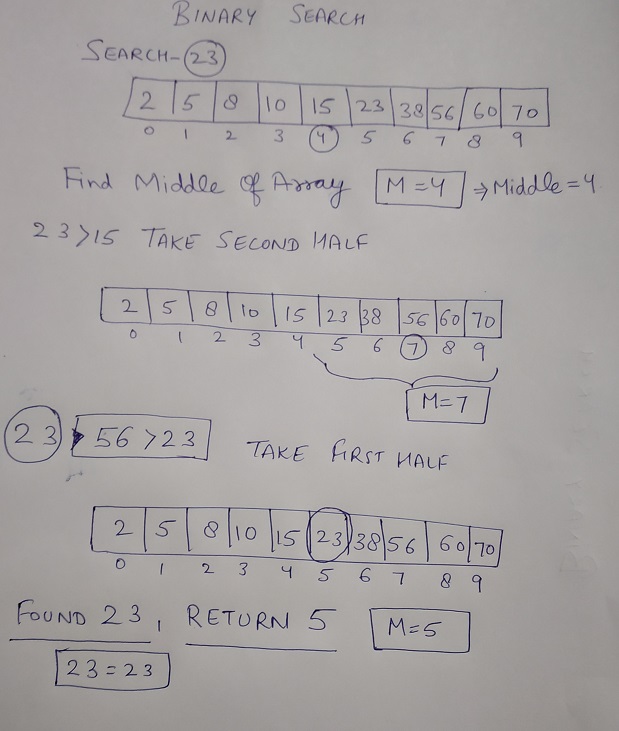 BINARY SEARCH
SEARCH-23
2 5 8 10 15 23 38 56 60 70
0 1 2 3 4 5 6 7 8 9
Find Middle of Array M=4 ⇒ Middle=4
23>15 TAKE SECOND HALF
2 5 8 10 15 23 38 56 60 70
0 1 2 3 4 5 6 7 8 9
M=7
23 56>23 TAKE FIRST HALF
2 5 8 10 15 23 38 56 60 70
0 1 2 3 4 5 6 7 8 9
FOUND 23, RETURN 5 M=5
23=23